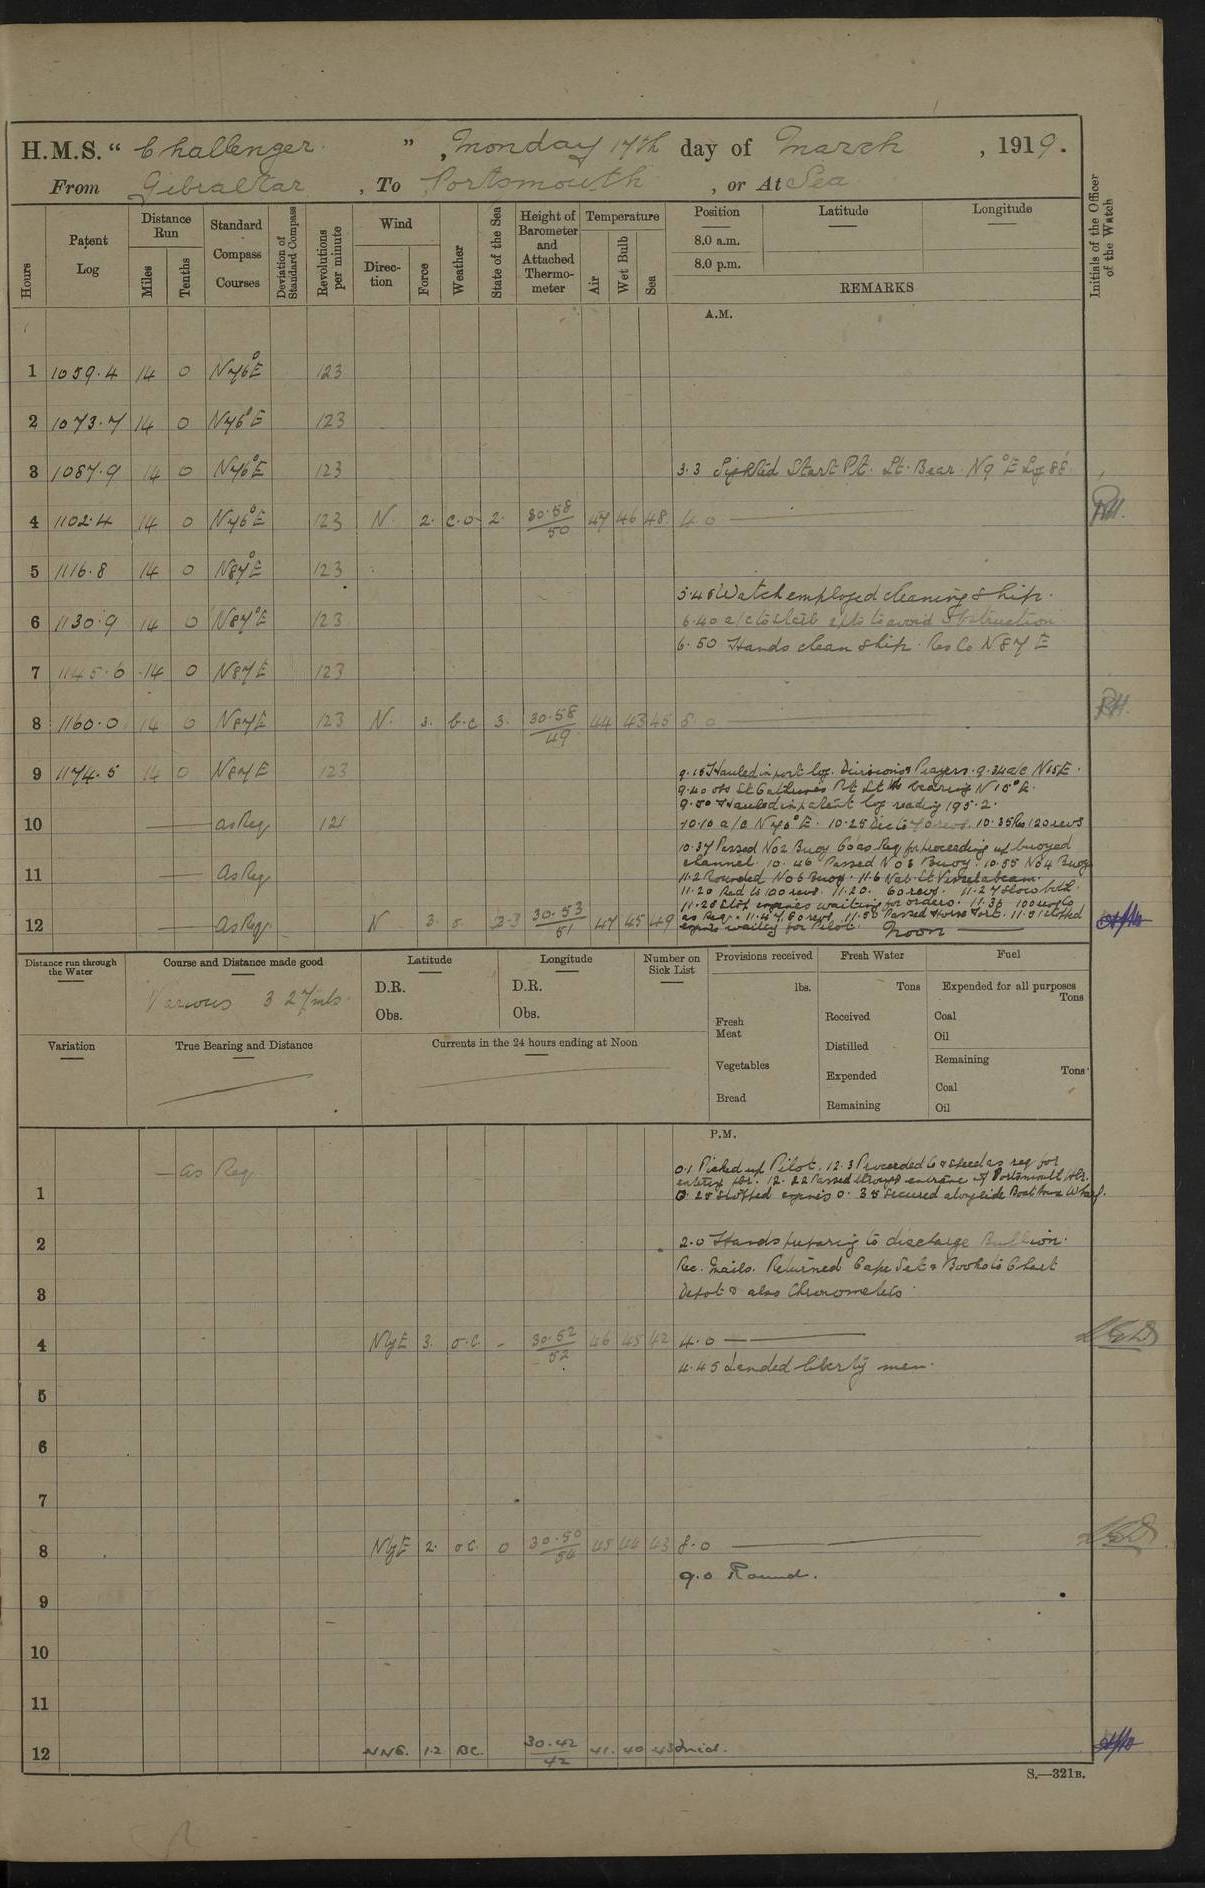 H.M.S. “ Challenger ” , Monday 17th day of March , 1919.
From Gibraltar , To Portsmouth , or At Sea
Hours
Patent Log
Distance Run
Miles
Tenths
Standard Compass Courses
Deviation of Standard Compass
Revolutions per minute
Wind
Direction
Force
Weather
State of the Sea
Height of Barometer and Attached Thermometer
Temperature
Air
Wet Bulb
Sea
Position
8.0 a.m.
8.0 p.m.
Latitude
Longitude
REMARKS
Initials of the Officer of the Watch
A.M.
1 1059.4 14 0 N76°E 123
2 1073.7 14 0 N76°E 123
3 1087.9 14 0 N76°E 123 3.3 Sighted Start Pt. Lt. Bear. N9°E Log 88.
4 1102.4 14 0 N76°E 123 N. 2. c.o. 2. 30.58/50 47 46 48. 4.0
5 1116.8 14 0 N87°E 123
5.45 Watch employed cleaning ship.
6 1130.9 14 0 N87°E 123 6.40 a/c to avoid obstruction
6.50 Hands clean ship. Res Co N87E
7 1145.6 14 0 N87E 123
8 1160.0 14 0 N87E 123 N. 3. b.c 3. 30.58/49 44 43 45 8.0
9 1174.5 14 0 N87E 123 9.15 Hauled in port log. Divisions Prayers. 9.34 a/c N85E.
9.40 St Catherines Pt Lt Ho bearing N10°E.
9.50 Hauled in patent log reading 195.2.
10 as Req 121 10.10 a/c N76°E. 10.25 Dec to 70 revs. 10.35 Rs 120 revs
10.37 Passed No2 Buoy Co as Req for proceeding up buoyed
channel. 10.46 Passed No 3 Buoy. 10.55 No4 Buoy
11 As Req 11.2 Rounded No6 Buoy. 11.6 Nab Lt Vessel abeam.
11.20 Red to 100 revs. 11.20. 60 revs. 11.27 Slow both.
11.28 Stop engines waiting for orders. 11.36 100 revs Co
12 As Req N 3. o. 2.3 30.53/51 47 45 49 as Req. 11.47 60 revs. 11.50 Passed Horse Fort. 11.51 stopped
engines waiting for Pilot. Noon
Distance run through the Water
Course and Distance made good
Various 327 mls.
Latitude
D.R.
Obs.
Longitude
D.R.
Obs.
Number on Sick List
Provisions received
lbs.
Fresh Meat
Vegetables
Bread
Fresh Water
Tons
Received
Distilled
Expended
Remaining
Fuel
Expended for all purposes
Tons
Coal
Oil
Remaining
Tons
Coal
Oil
Variation
True Bearing and Distance
Currents in the 24 hours ending at Noon
P.M.
as Req 0.1 Picked up Pilot. 12.3 Proceeded Co & speed as req for
entering hbr. 12.22 Passed through entrance of Portsmouth Hbr.
1 0.25 Stopped engines 0.35 Secured alongside Boat House Wharf.
2 2.0 Hands preparing to discharge Bullion.
Rec. Mails. Returned Cape Set & Books to Chart
3 Depot & also Chronometers
4 NbyE 3. o.c. - 30.52/52 46 45 42 4.0
4.45 Landed liberty men.
5
6
7
8 NbyE 2. oc. 0 30.50/54 45 44 43 8.0
9.0 Round.
9
10
11
12 NNE. 1.2 BC. 30.42/42 41. 40 43 Mid.
S.—321B.